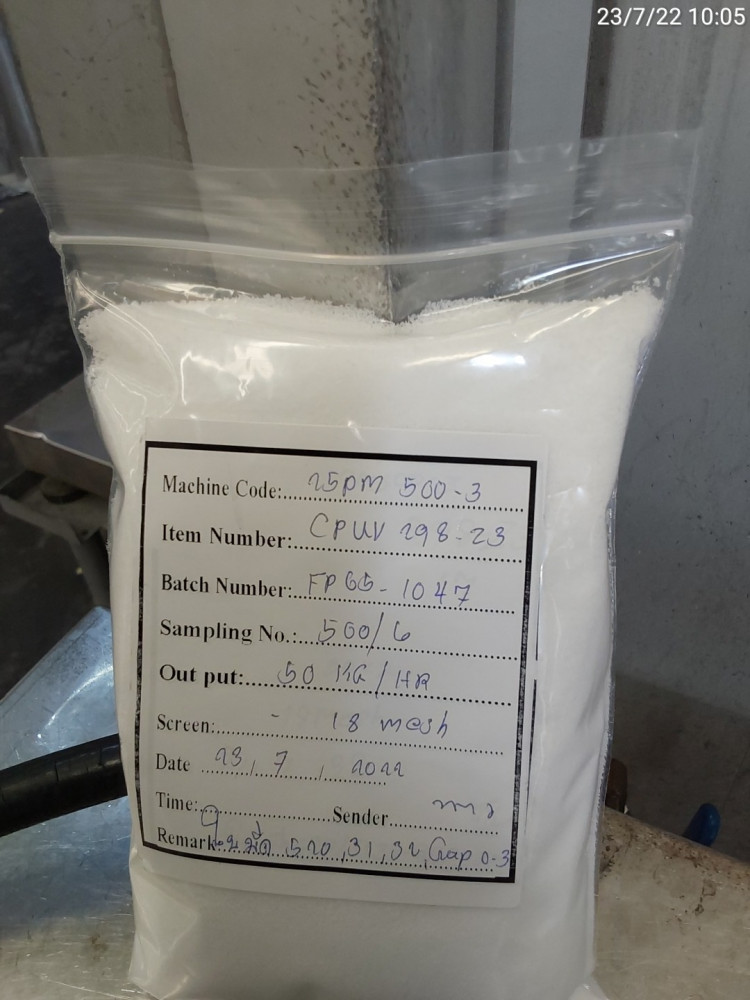 23/7/22 10:05
Machine Code: 25pm 500-3
Item Number: CPUV 298-23
Batch Number: FP65-1047
Sampling No.: 500/6
Out put: 50 KG/HR
Screen: - 18 mesh
Date 23/7/2022
Time: Sender
Remark: ใบมีด 520,31,32, Gap 0-3